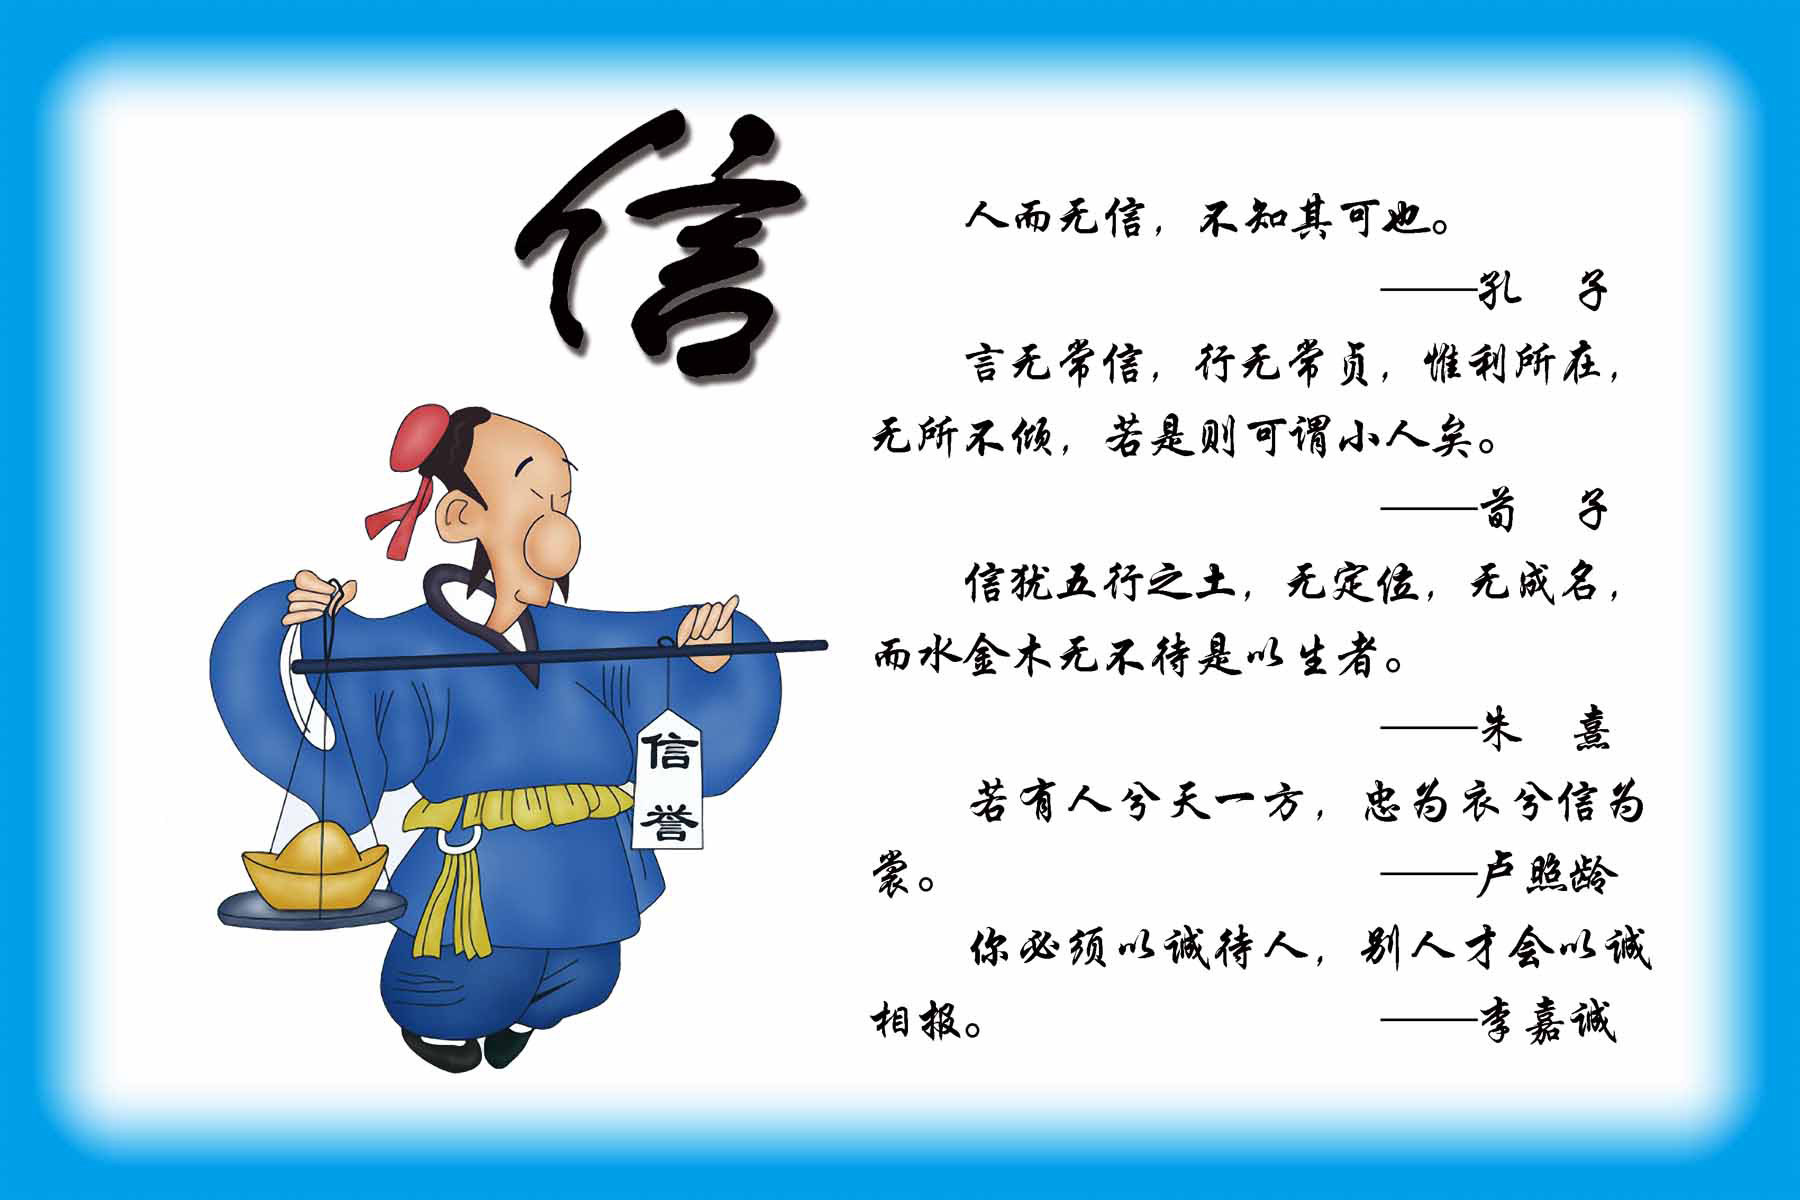 信
人而无信，不知其可也。
——孔 子
言无常信，行无常贞，惟利所在，
无所不倾，若是则可谓小人矣。
——荀 子
信犹五行之土，无定位，无成名，
而水金木无不待是以生者。
——朱 熹
若有人兮天一方，忠为衣兮信为
裳。 ——卢照龄
你必须以诚待人，别人才会以诚
相报。 ——李嘉诚
信
誉